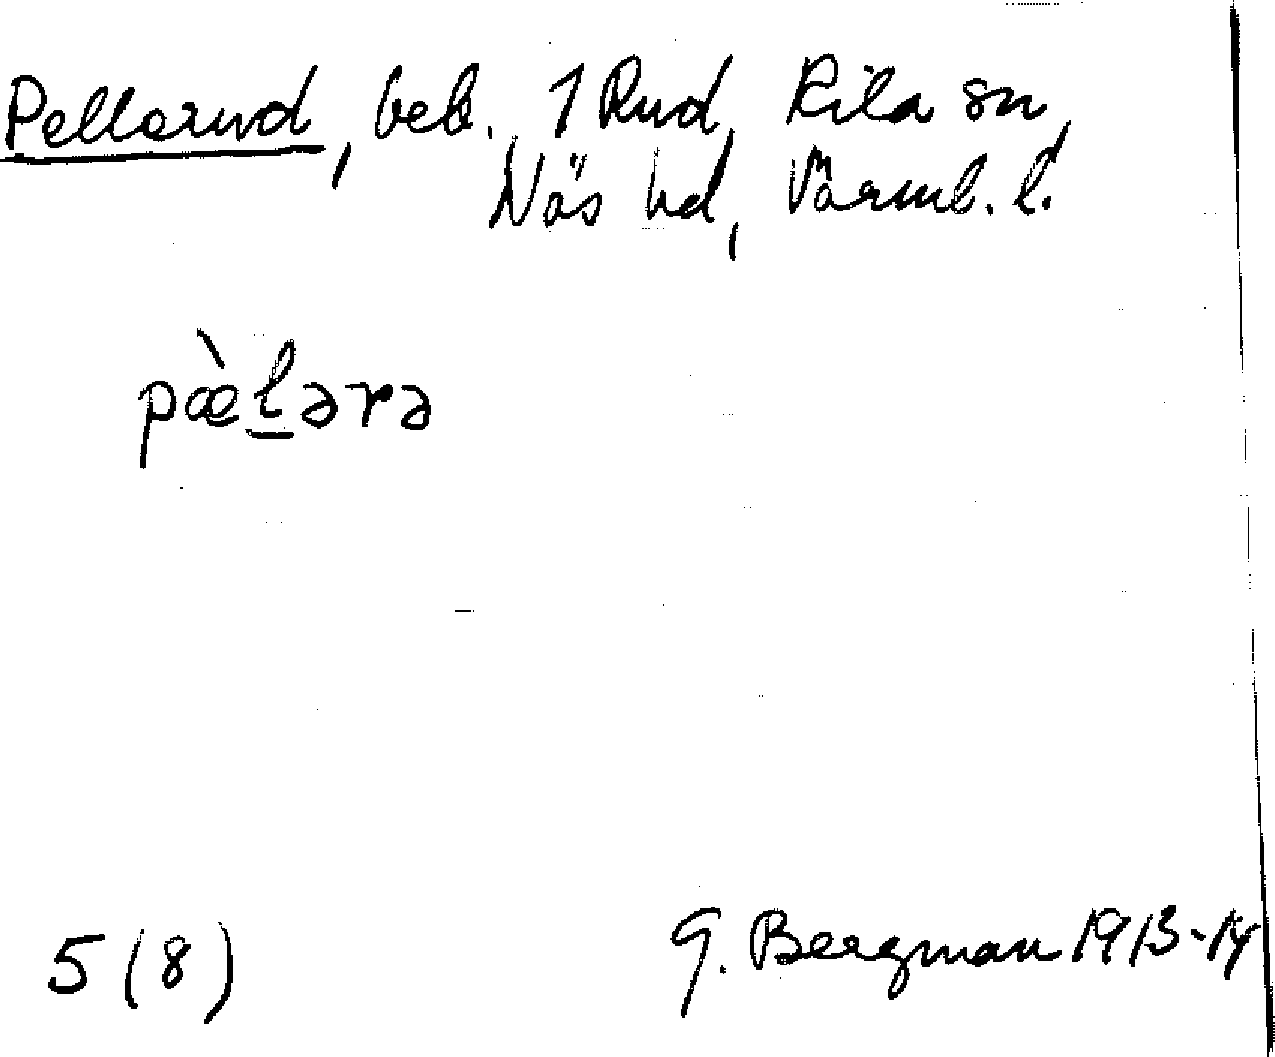 Pellerud, beb. 1 Rud, Kila sn,
Näs hd, Värml. l.
pæ̀l̲ərə
5 (8)
G. Bergman 1913-14